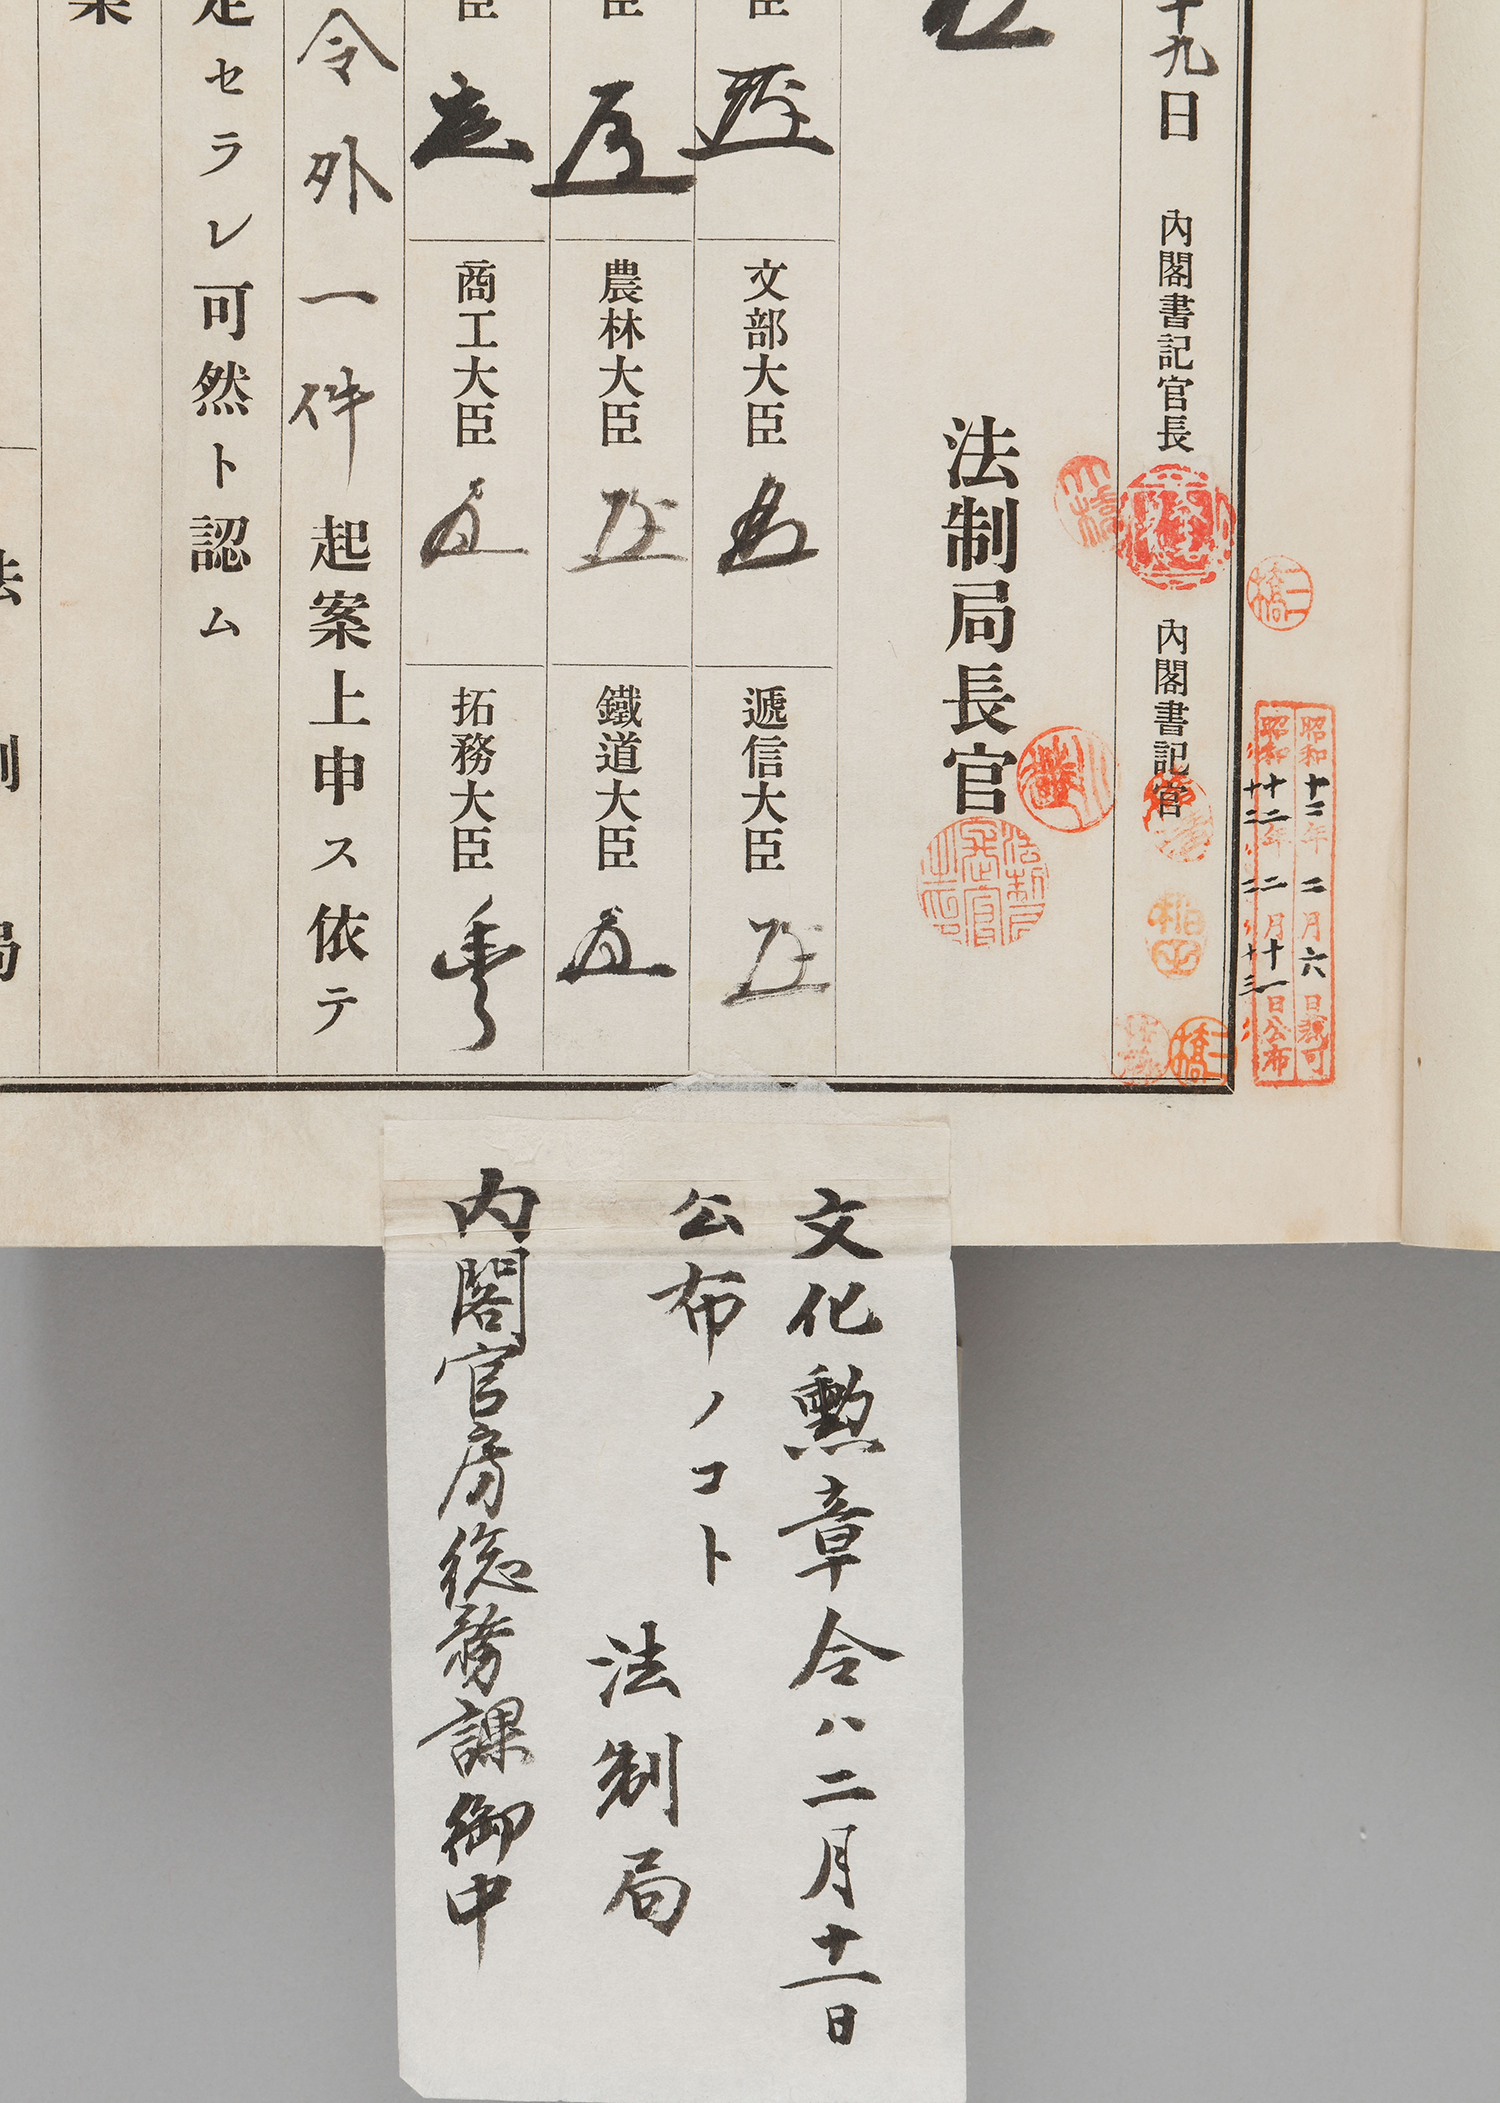 昭和十二年二月六日裁可
昭和十二年二月十一日公布
十九日　内閣書記官長　内閣書記官
法制局長官
臣　文部大臣　遞信大臣
臣　農林大臣　鐵道大臣
臣　商工大臣　拓務大臣
令外一件起案上申ス依テ
定セラレ可然ト認ム
案
法制局
文化勲章令ハ二月十一日
公布ノコト
法制局
内閣官房総務課御中